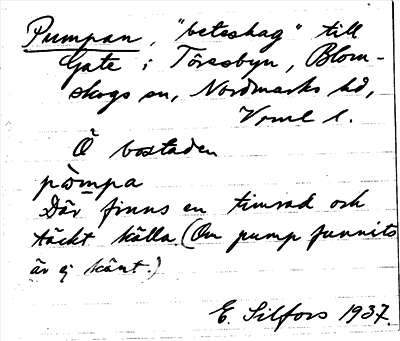 Pumpan, "beteshag" till
Gate i Töresbyn, Blom-
skogs sn, Nordmarks hd,
Vrml l.
Ö bostaden
pòmpa
Där finns en timrad och
täckt källa. (Om pump funnits
är ej känt.)
E. Silfors 1937.